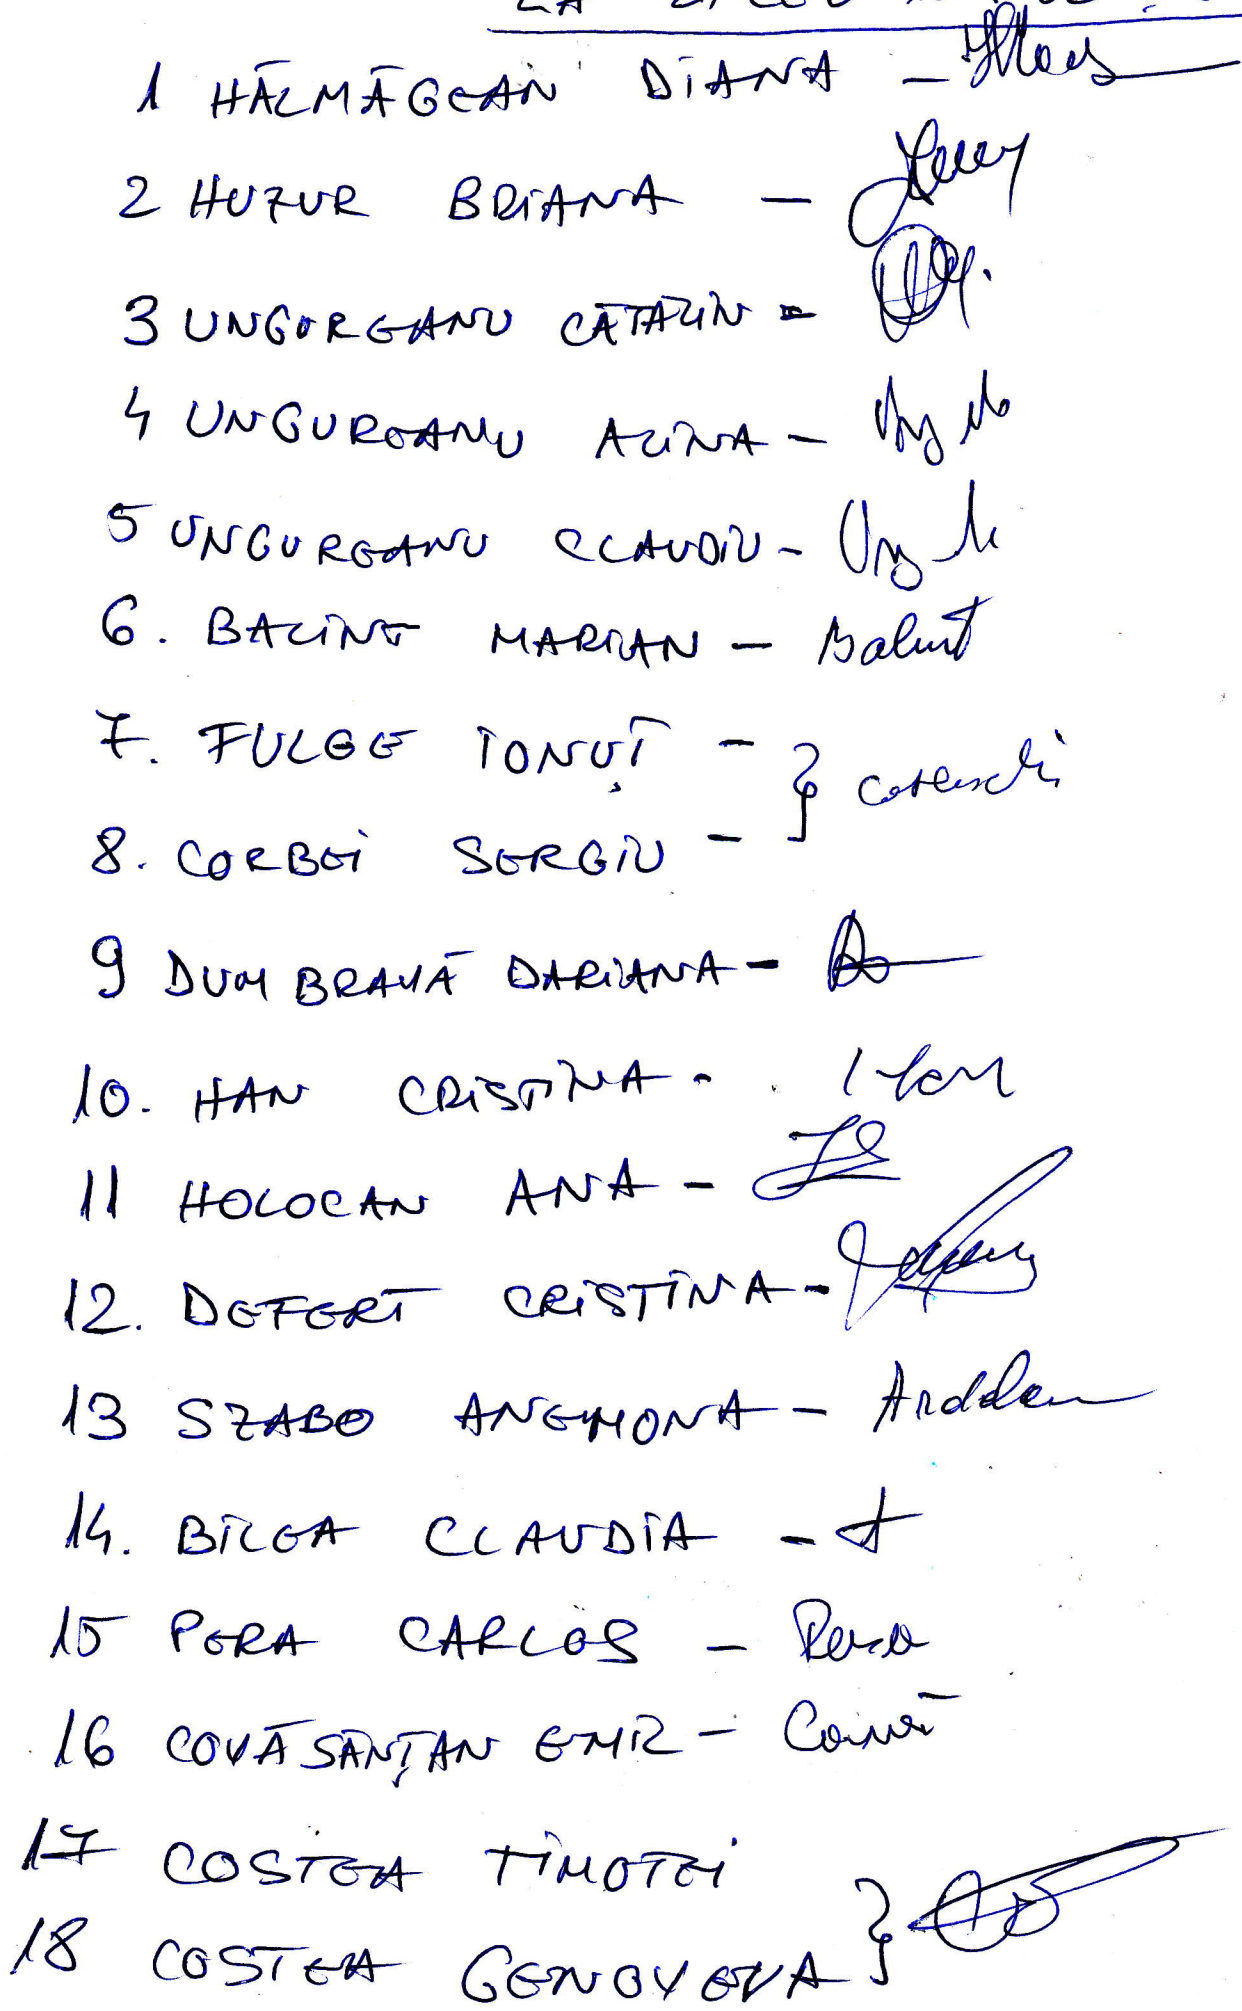 LA
1 HĂLMĂGEAN DIANA -
2 HUZUR BRIANA -
3 UNGUREANU CĂTĂLIN -
4 UNGUREANU ALINA -
5 UNGUREANU CLAUDIU -
6. BALINT MARIAN - Balint
7. FULGE IONUȚ -
8. CORBEI SERGIU -
9 DUMBRAVĂ DARIANA -
10. HAN CRISTINA - Han
11 HOLOCAN ANA -
12. DEFERT CRISTINA -
13 SZABO ANEMONA - Ardelean
14. BILEA CLAUDIA -
15 PERA CARLOS - Pera
16 COVĂSÂNȚAN EMIR -
17 COSTEA TIMOTEI
18 COSTEA GENOVEVA